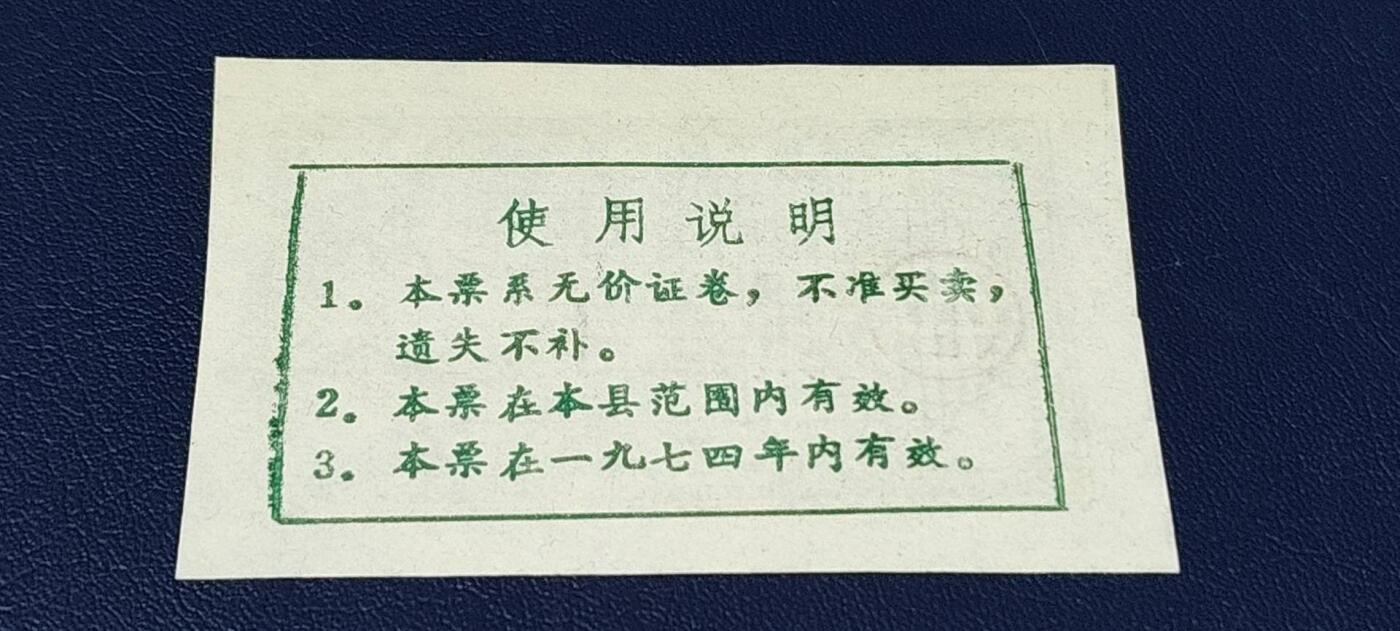 使用说明
1。本票系无价证卷，不准买卖，
遗失不补。
2。本票在本县范围内有效。
3。本票在一九七四年内有效。